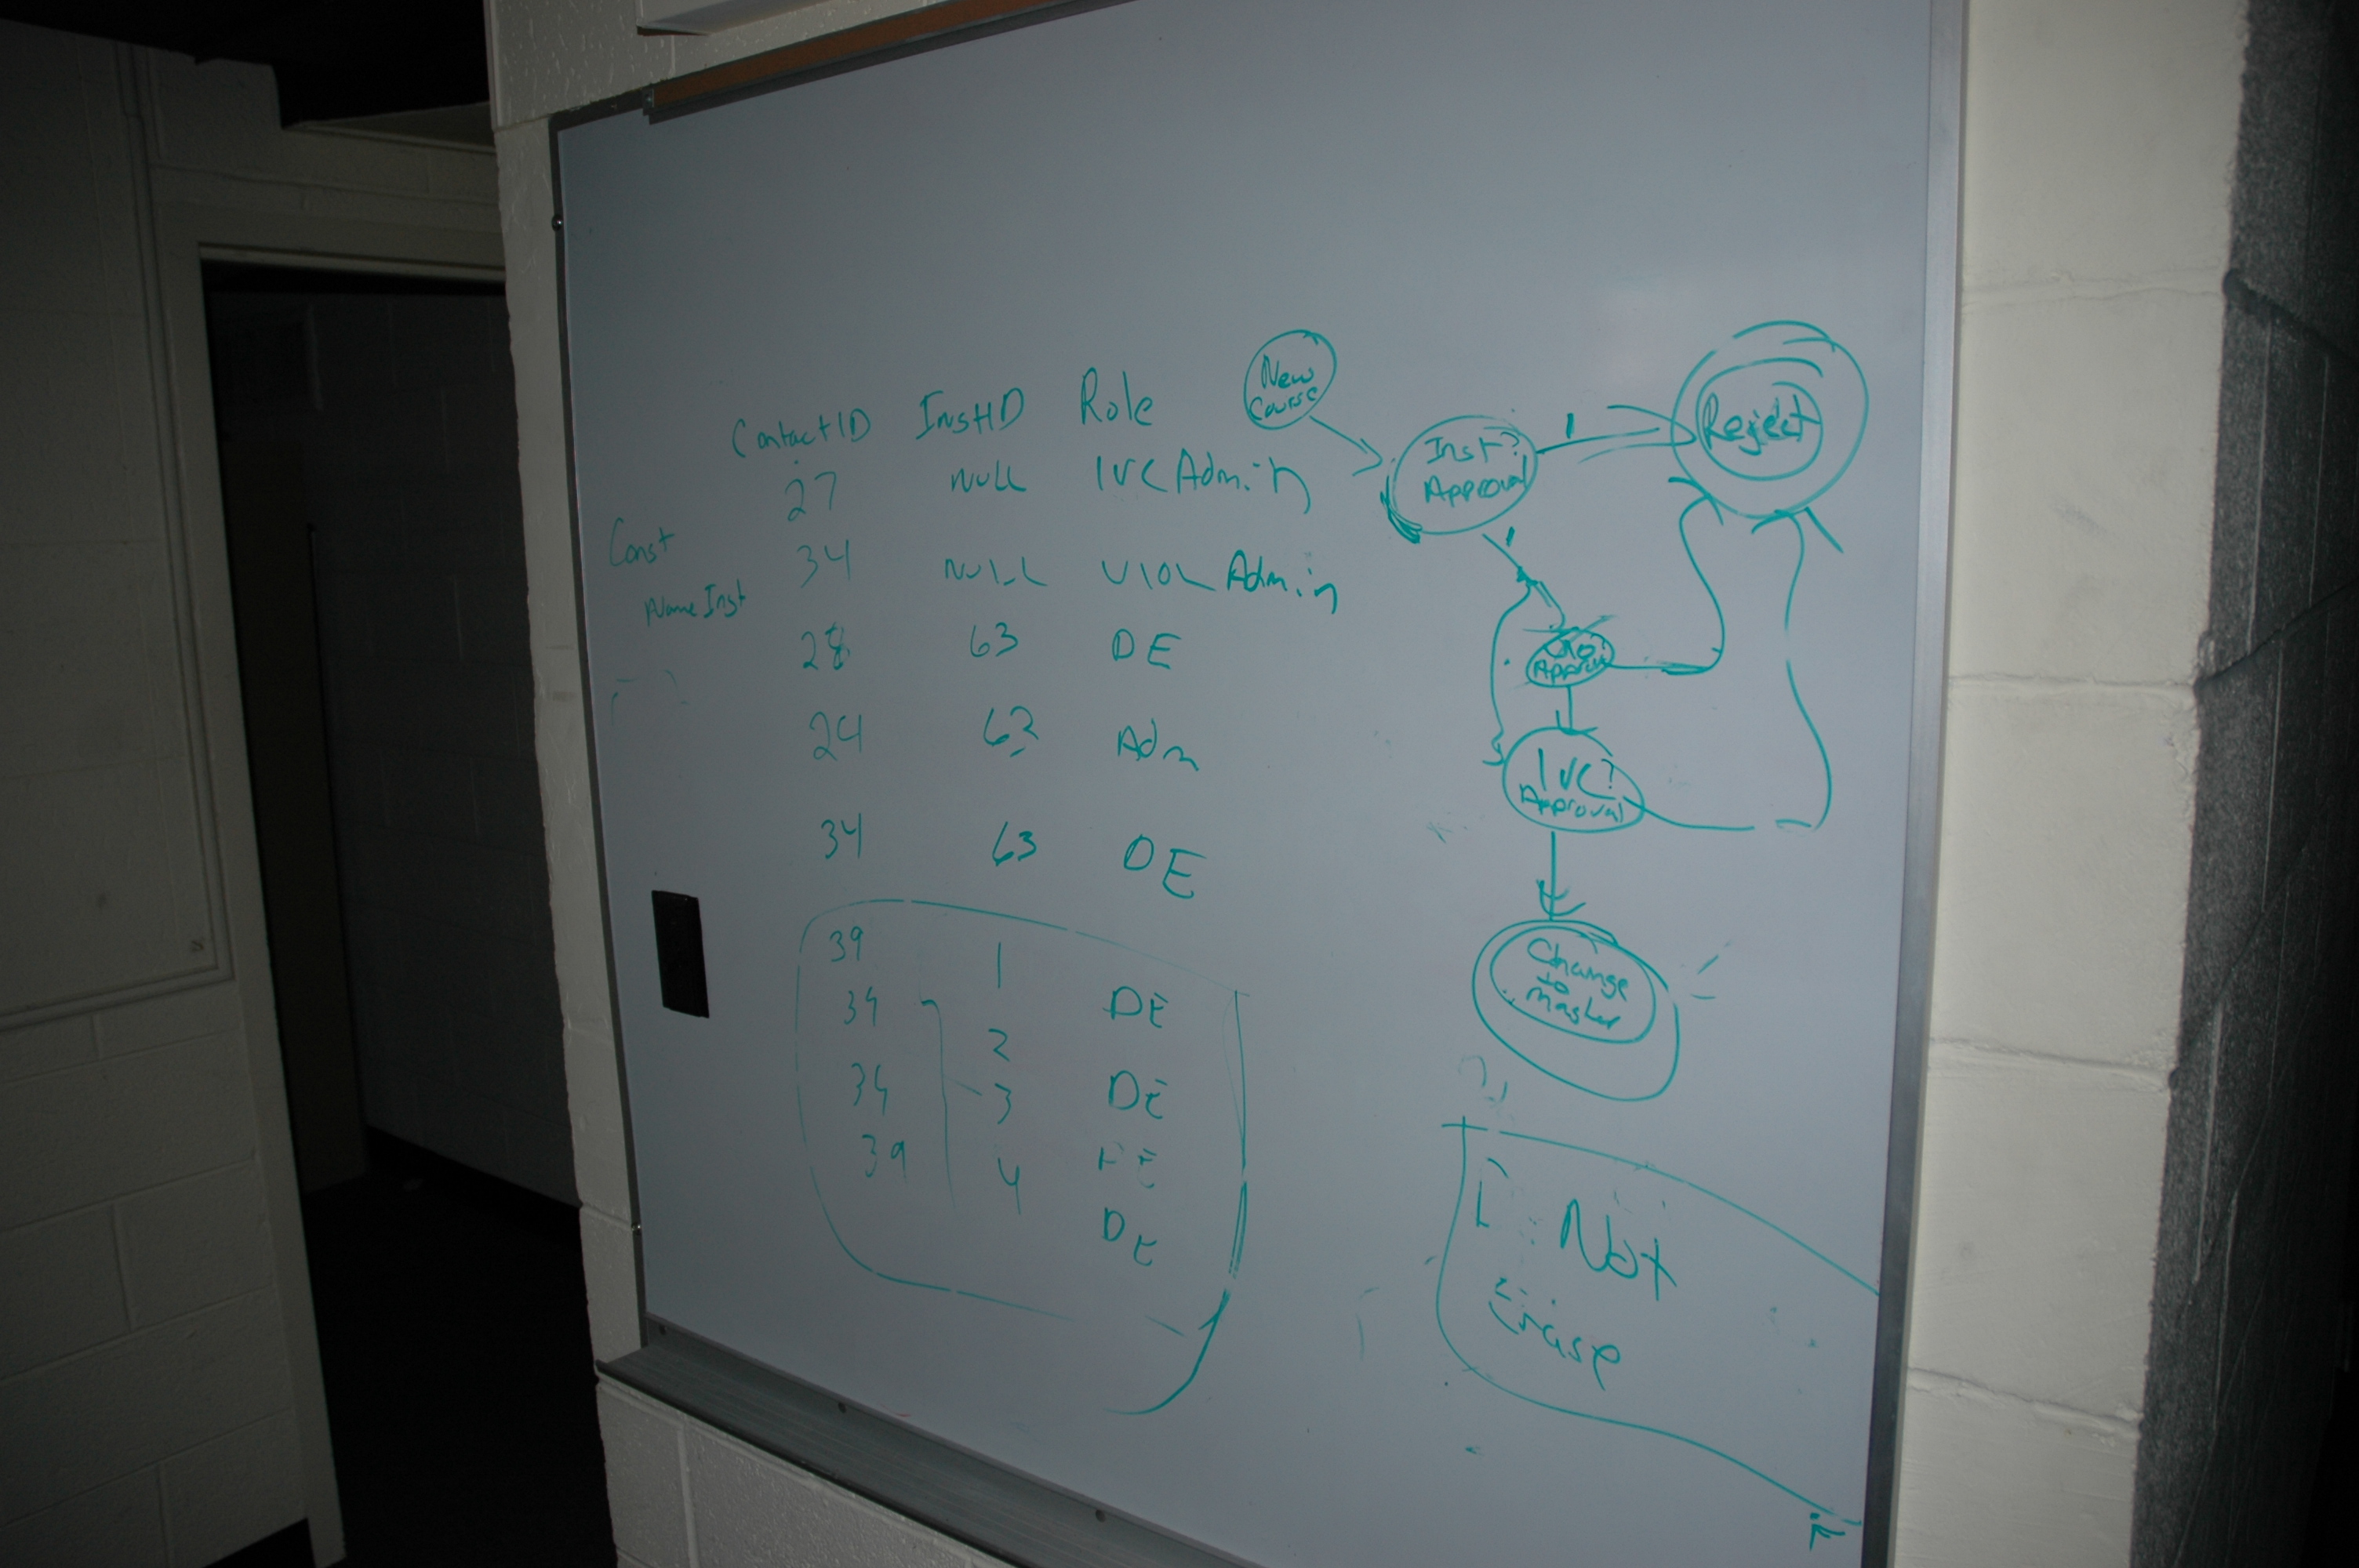 ContactID InstID Role
27 NULL IVC Admin
Const
34 NULL VIOL Admin
Name Inst
28 63 DE
24 63 Adm
34 63 DE
39 1 DE
39 2 DE
39 3 DE
39 4 DE
New
Course
Inst?
Approval
Reject
Approval
IVC?
Approval
Change
to
master
Not
Erase